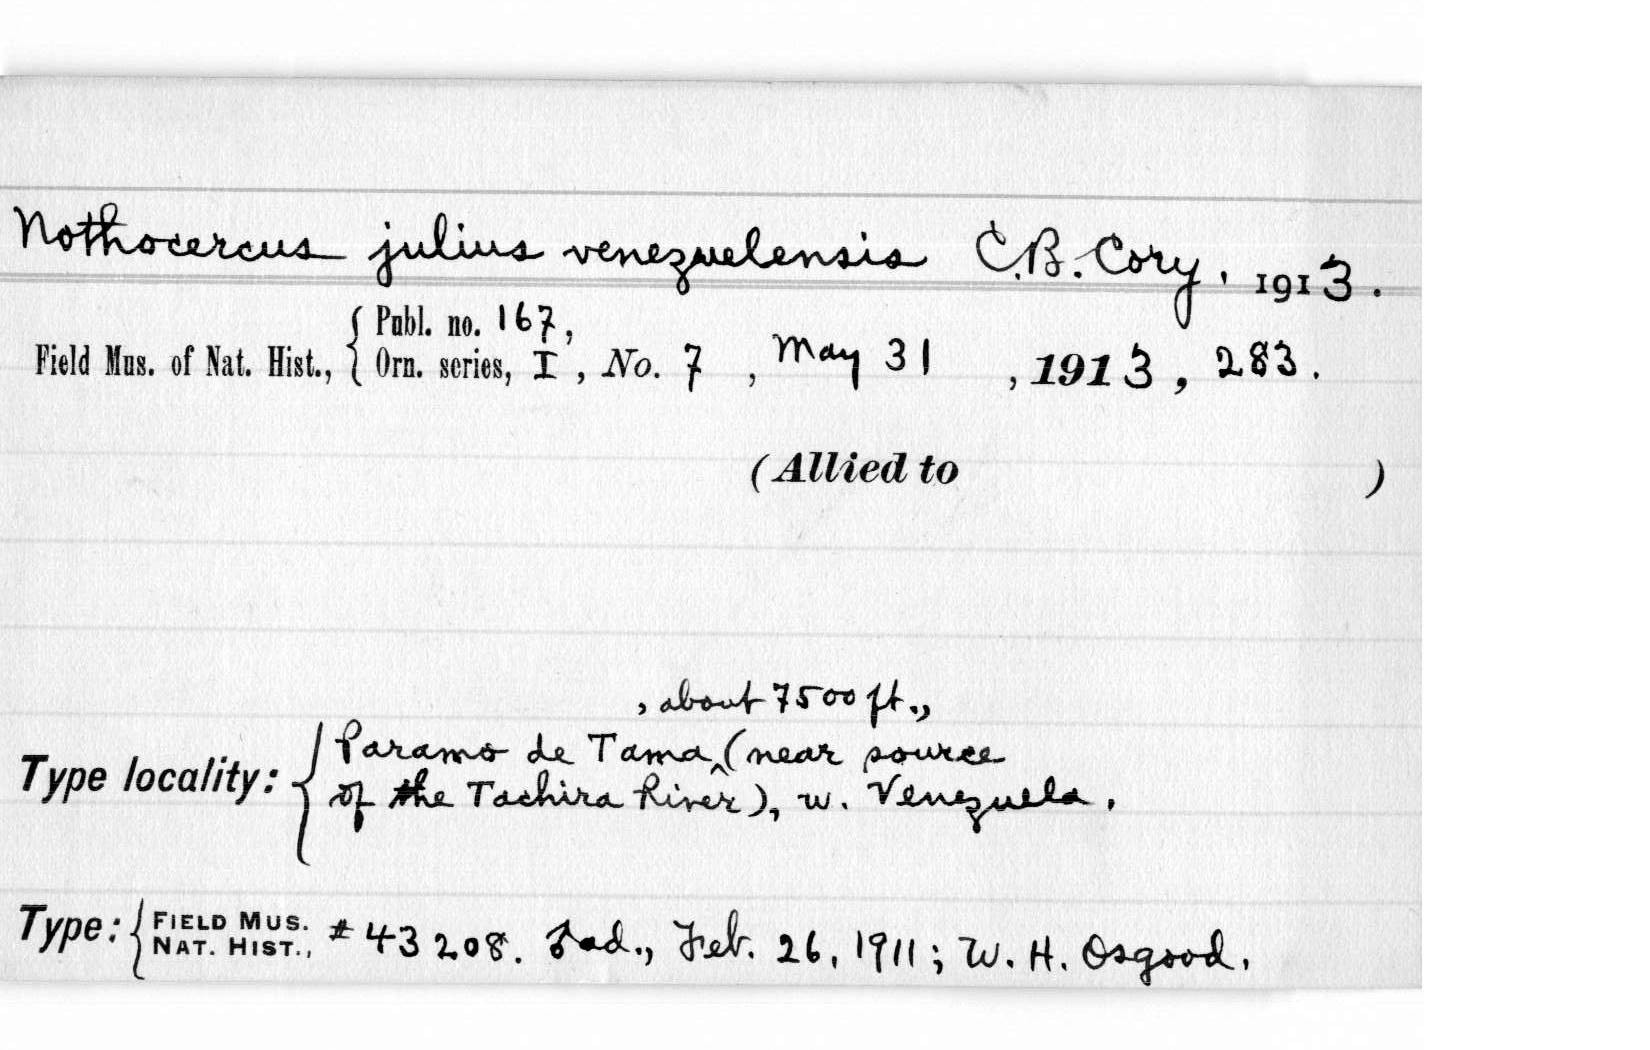 Nothocercus julius venezuelensis C.B. Cory, 1913.
Publ. no. 167,
Field Mus. of Nat. Hist., Orn. series, I, No. 7, May 31, 1913, 283.
(Allied to )
, about 7500 ft.,
Type locality: Paramo de Tama ^ (near source
of the Tachira River), w. Venezuela.
Type: FIELD MUS. NAT. HIST., # 43208. ♂ad., Feb. 26, 1911; W. H. Osgood.